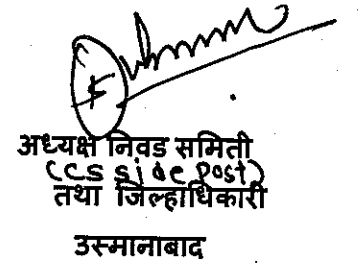 अध्यक्ष निवड समिती
(CS side Post)
तथा जिल्हाधिकारी
उस्मानाबाद